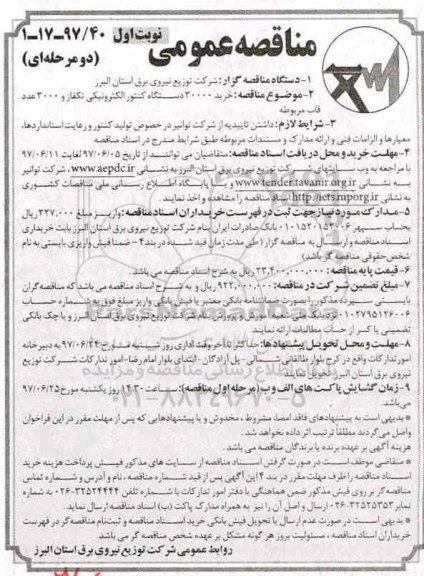 مناقصه عمومی
نوبت اول ۹۷/۴۰-۱۷-۱
(دو مرحله ای)
۱- دستگاه مناقصه گزار: شرکت توزیع نیروی برق استان البرز
۲- موضوع مناقصه: خرید ۳۰۰۰۰ دستگاه کنتور الکترونیکی تکفاز و ۳۰۰۰ عدد
قاب مربوطه
۳- شرایط لازم: داشتن تاییدیه از شرکت توانیر در خصوص تولید کنتور و رعایت استانداردها،
معیارها و الزامات فنی و ارائه مدارک و مستندات مربوطه طبق شرایط مندرج در اسناد مناقصه
۴- مهلت خرید و محل دریافت اسناد مناقصه: متقاضیان می توانند از تاریخ ۹۷/۰۶/۰۵ لغایت ۹۷/۰۶/۱۱
با مراجعه به وب سایتهای شرکت توزیع نیروی برق استان البرز به نشانی www.aepdc.ir، شرکت توانیر
به نشانی www.tender.tavanir.org.ir و یا پایگاه اطلاع رسانی ملی مناقصات کشوری
به نشانی http://iets.mporg.ir اسناد مناقصه را مشاهده و اخذ نمایند.
۵- مدارک مورد نیاز جهت ثبت در فهرست خریداران اسناد مناقصه: واریز مبلغ ۳۲۷.۰۰۰ ریال
بحساب سپهر ۰۱۰۱۵۲۰۱۵۳۰۰۶ بانک صادرات ایران بنام شرکت توزیع نیروی برق استان البرز بابت خریداری
اسناد مناقصه و ارسال به مناقصه گزار (طی مدت زمان قید شده در بند ۴ - ضمنا فیش واریزی بایستی به نام
شخص حقوقی مناقصه گر باشد)
۶- قیمت پایه مناقصه: ۲۳.۴۰۰.۰۰۰.۰۰۰ ریال به شرح اسناد مناقصه می باشد.
۷- مبلغ تضمین شرکت در مناقصه: ۹۲۲.۰۰۰.۰۰۰ ریال و به شرح اسناد مناقصه می باشد که مناقصه گران
بایستی سپرده مذکور را بصورت ضمانتنامه بانکی معتبر یا فیش بانکی واریز مبلغ فوق به شماره حساب
۰۱۰۲۷۹۵۱۲۶۰۰۶ نزد بانک صادرات شعبه آموزش و پرورش بنام شرکت توزیع نیروی برق استان البرز و یا چک بانکی
تضمینی یا کسر از حساب مطالبات ارائه نمایند
۸- مهلت و محل تحویل پیشنهادها: حداکثر تا آخر وقت اداری روز شنبه مورخ ۹۷/۰۶/۲۴ به دبیرخانه
امور تدارکات واقع در کرج بلوار طالقانی شمالی - پل آزادگان - ابتدای بلوار امام رضا - امور تدارکات شرکت توزیع
نیروی برق استان البرز تحویل نمایند
۹- زمان گشایش پاکت های الف و ب (مرحله اول مناقصه): ساعت ۱۴:۳۰ روز یکشنبه مورخ ۹۷/۰۶/۲۵
می باشد.
* بدیهی است به پیشنهادهای فاقد امضا، مشروط، مخدوش و یا پیشنهادهایی که پس از مهلت مقرر در این فراخوان
واصل می گردند مطلقاً ترتیب اثر داده نخواهد شد.
هزینه آگهی بر عهده برنده یا برندگان مناقصه می باشد.
* متقاضی موظف است در صورت گرفتن اسناد مناقصه از سایت های مذکور فیش پرداخت هزینه خرید
اسناد مناقصه را ظرف مهلت مقرر در بند ۴ این آگهی پس از قید شماره مناقصه، نام و آدرس و شماره تماس
مناقصه گر بر روی فیش مذکور ضمن هماهنگی با دفتر امور تدارکات با شماره تلفن ۳۲۵۲۴۴۴۴-۰۲۶ به شماره
نمابر ۳۲۵۲۵۳۵۳-۰۲۶ ارسال و اصل آن را نیز به همراه مدارک پاکت (ب) اسناد مناقصه ارسال نماید.
* بدیهی است در صورت عدم ارسال یا تحویل فیش بانکی خرید اسناد مناقصه و ثبت نام مناقصه گر در فهرست
خریداران اسناد مناقصه، مسئولیت بروز هر گونه مشکل بر عهده شخص مناقصه گر می باشد.
روابط عمومی شرکت توزیع نیروی برق استان البرز
پایگاه اطلاع رسانی مناقصه و مزایده
۰۲۱-۸۸۳۴۹۶۷۰-۵